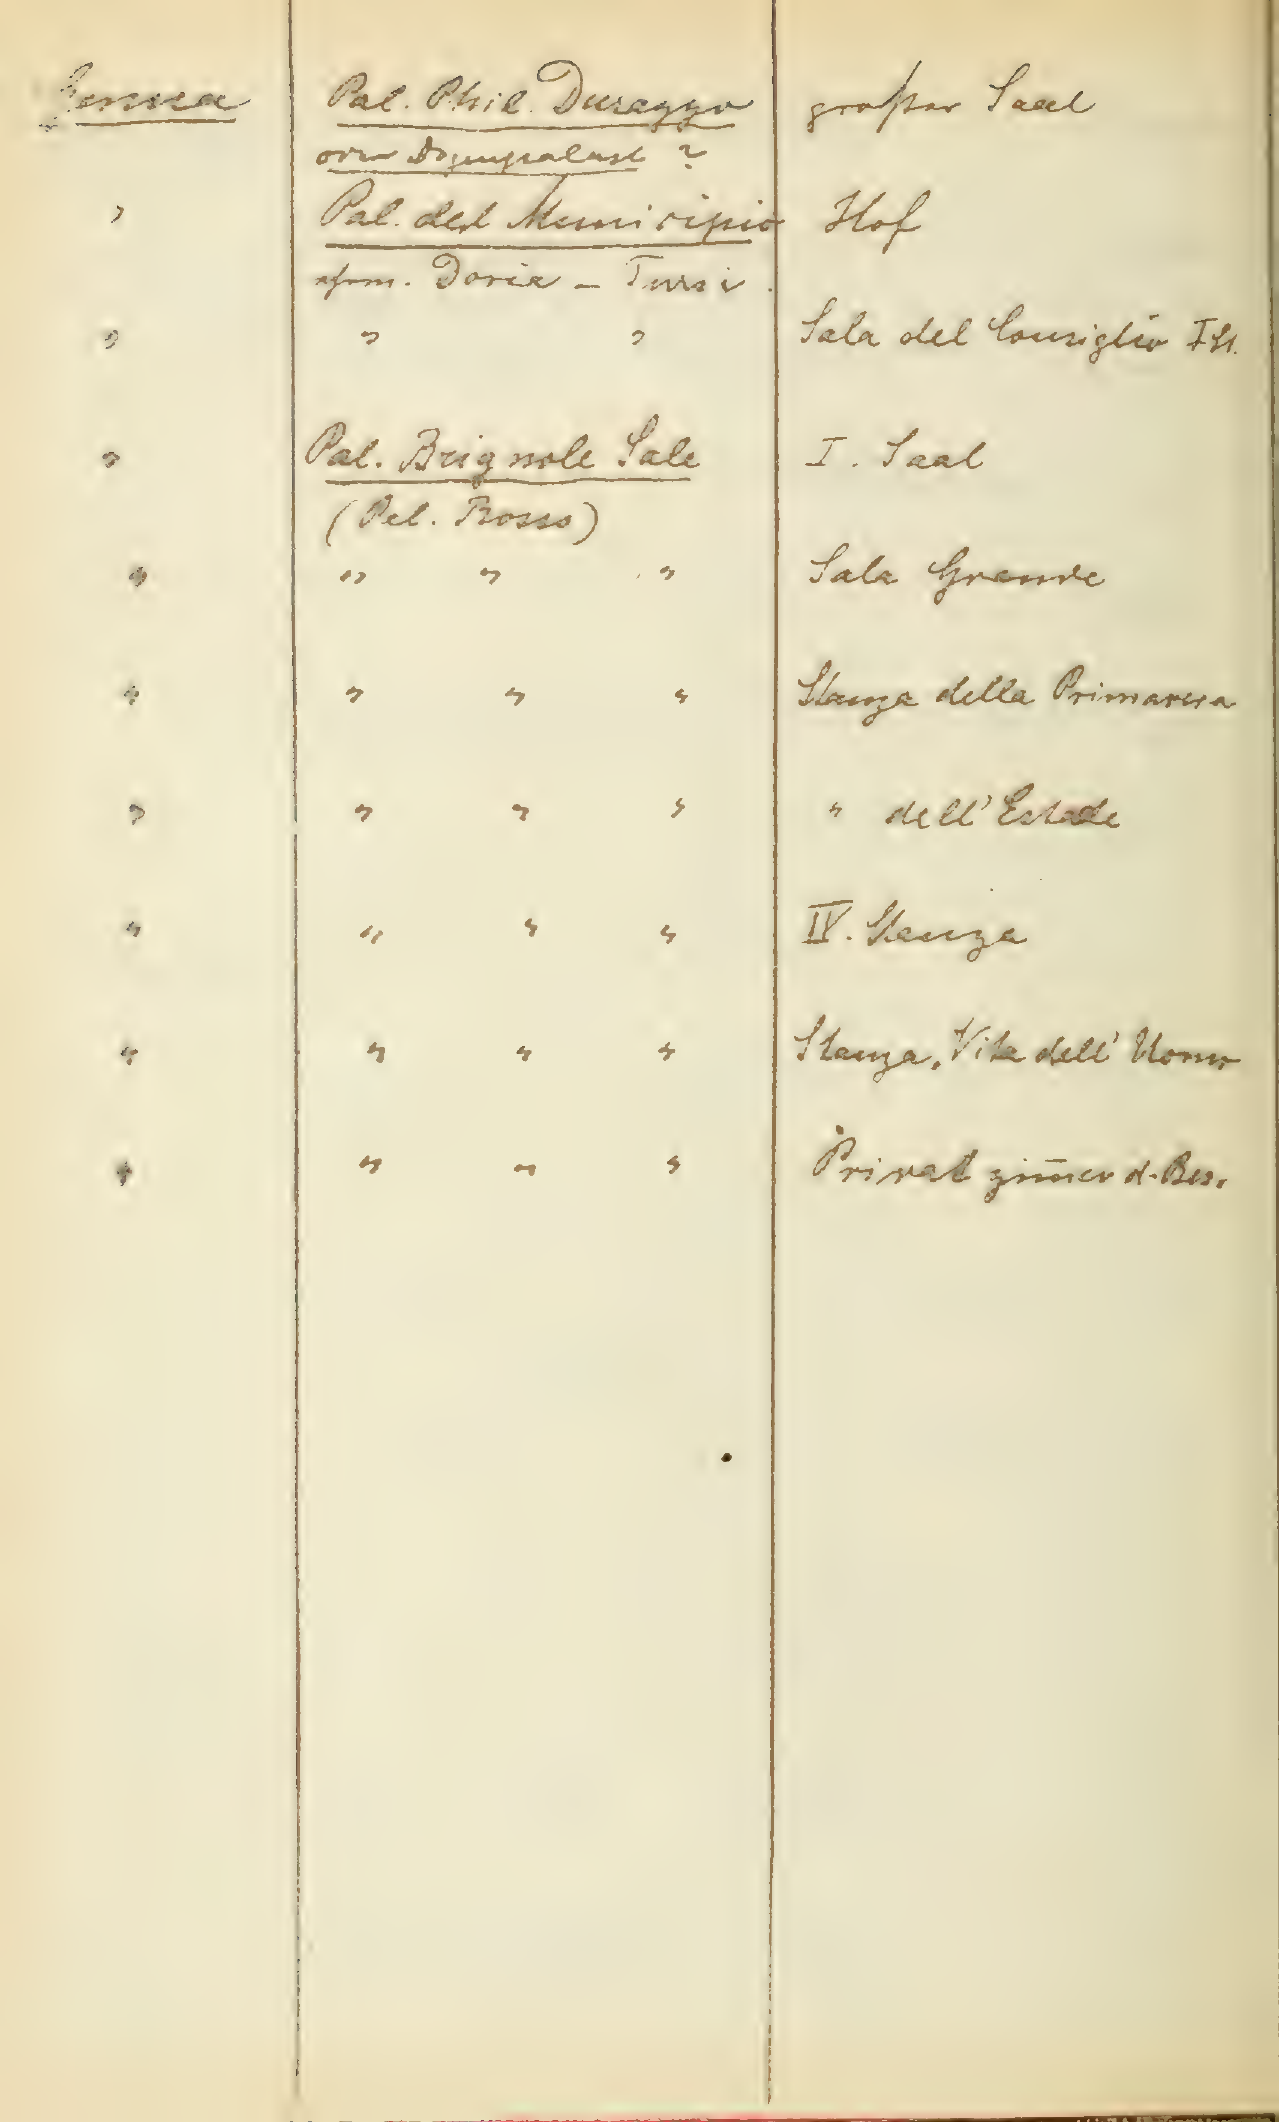 Genua Pal. Phil. Durazzo großer Saal
oder Dogenpalast ?
" Pal. del Municipio Hof
ehem. Doria – Tursi.
" " " Sala del Consiglio I St.
" Pal. Brignole Sale I. Saal
(Pal. Rosso)
" " " " Sala Grande
" " " " Stanza della Primavera
" " " " " dell' Estade
" " " " IV. Stanza
" " " " Stanza, Vita dell' Uomo
" " " " Privat zim̅er d. Bes.